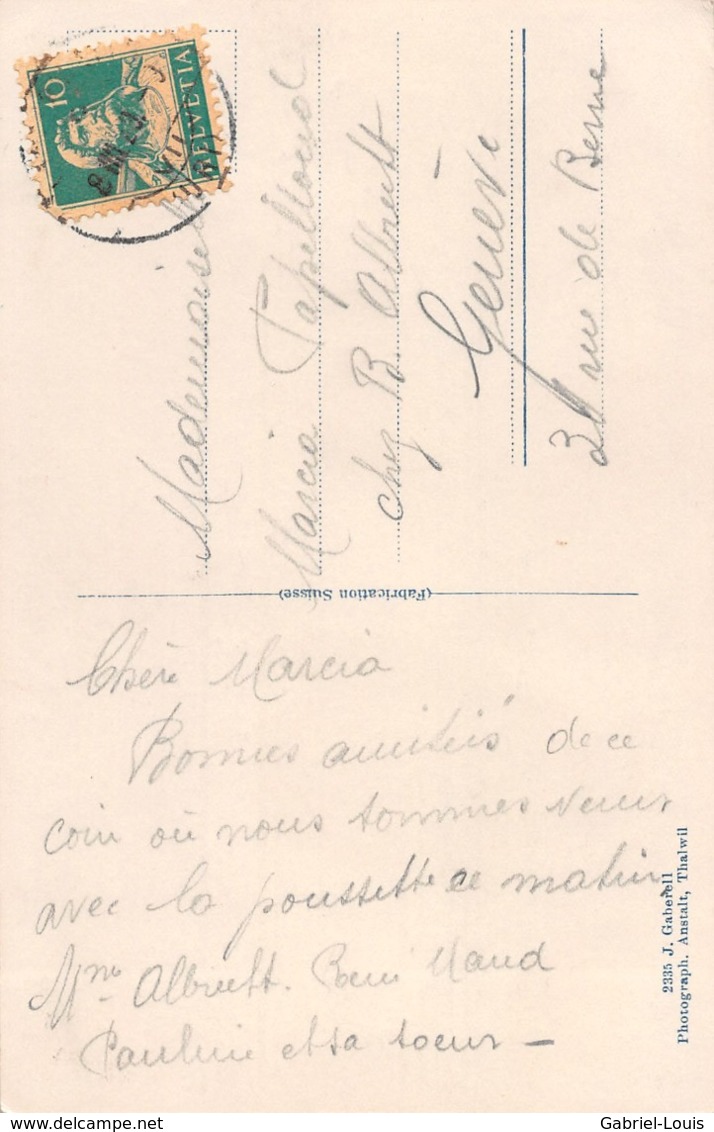 10
HELVETIA
8. III. 2
Mademoiselle
Marcia Papelloud
chez B. Albrett
Genève
31 rue de Berne
(Fabrication Suisse)
Chère Marcia
Bonnes amitiés de ce
coin où nous sommes venus
avec la poussette ce matin,
Mme Albrett. René Maud
Pauline et sa soeur -
2335 J. Gaberell
Photograph. Anstalt, Thalwil
Gabriel-Louis